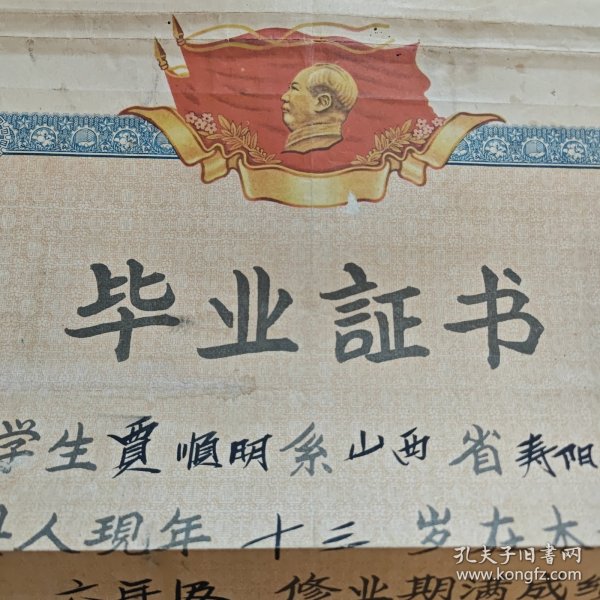 毕业証书
学生賈順明系山西省寿阳
人現年十三岁在本
修业期满成
孔夫子旧书网
www.kongfz.com